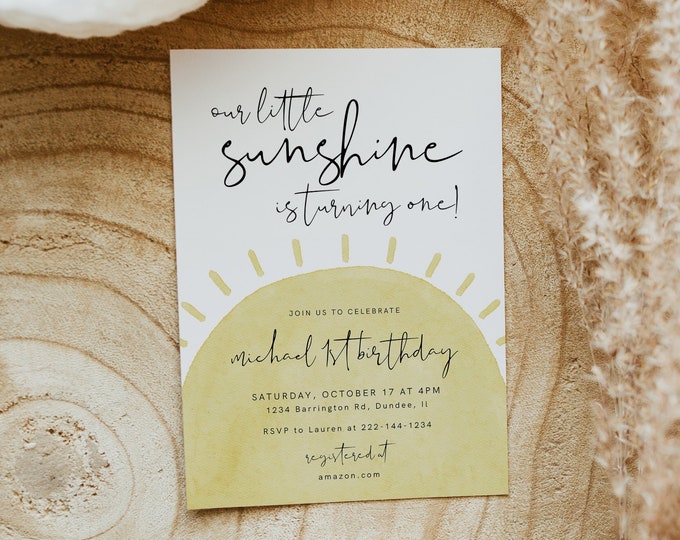 our little
sunshine
is turning one!
JOIN US TO CELEBRATE
michael 1st birthday
SATURDAY, OCTOBER 17 AT 4PM
1234 Barrington Rd, Dundee, Il
RSVP to Lauren at 222-144-1234
registered at
amazon.com